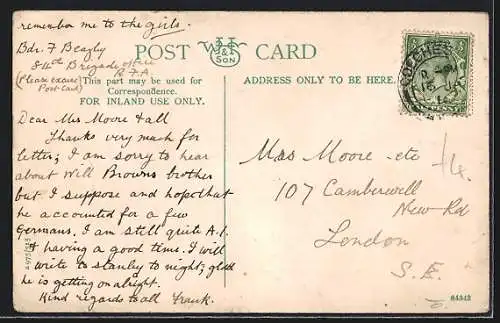 remember me to the girls.
Bdr. F Beagly
84th Brigade office
R.F.A.
(Please excuse
Post card)
POST CARD
WH
J&S
SON
This part may be used for
Correspondence.
FOR INLAND USE ONLY.
ADDRESS ONLY TO BE HERE.
COLCHESTER
Dear Mrs Moore & all
Thanks very much for
letter; I am sorry to hear
about Will Browns brother
but I suppose and hope that
he accounted for a few
Germans. I am still quite A.1.
& having a good time. I will
write to Stanley to night; glad
he is getting on alright.
Kind regards to all Frank.
Mrs Moore etc
107 Camberwell
New Rd
London
S.E.
84342